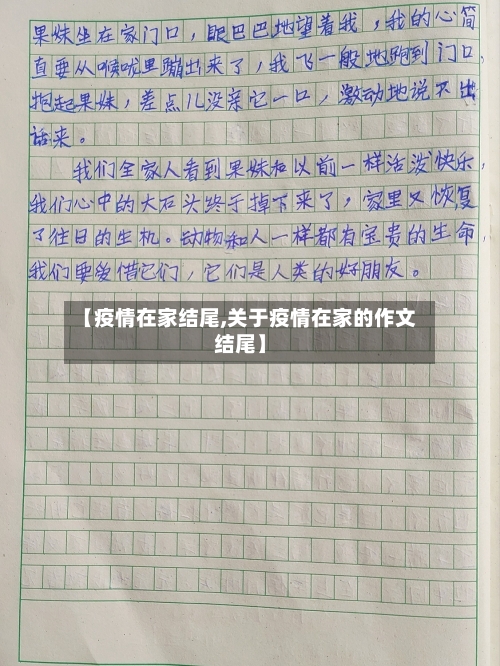 果妹坐在家门口，眼巴巴地望着我，我的心简
直要从喉咙里蹦出来了，我飞一般地跑到门口，
抱起果妹，差点儿没亲它一口，激动地说不出
话来。
我们全家人看到果妹和以前一样活泼快乐，
我们心中的大石头终于掉下来了，家里又恢复
了往日的生机。动物和人一样都有宝贵的生命，
我们要爱惜它们，它们是人类的好朋友。
【疫情在家结尾,关于疫情在家的作文
结尾】